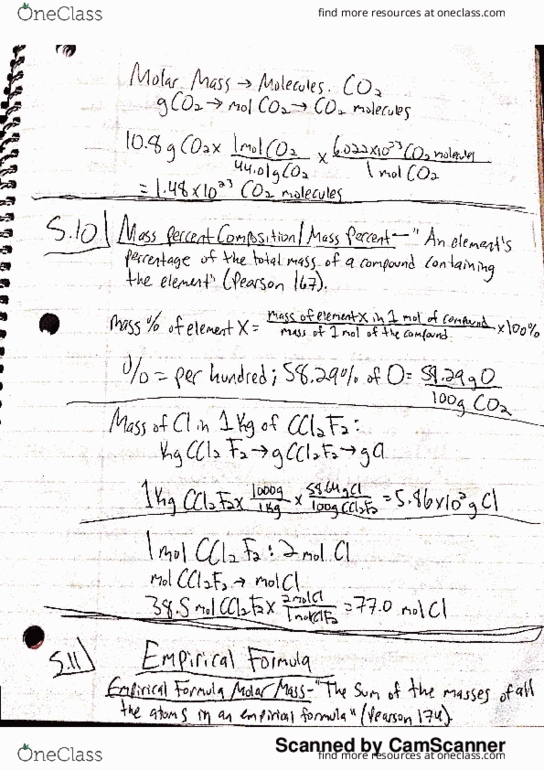 OneClass
find more resources at oneclass.com
Molar Mass → Molecules. CO₂
gCO₂ → mol CO₂ → CO₂ molecules
10.8 g CO₂ x 1 mol CO₂ / 44.01 g CO₂ x 6.022x10²³ CO₂ molecules / 1 mol CO₂
= 1.48 x 10²³ CO₂ molecules
5.10 Mass Percent Composition/Mass Percent - "An element's
percentage of the total mass of a compound containing
the element" (Pearson 167).
mass % of element X = mass of element X in 1 mol of compound / mass of 1 mol of the compound x 100%
% = per hundred; 58.29% of O = 58.29 g O / 100g CO₂
Mass of Cl in 1 Kg of CCl₂F₂:
Kg CCl₂F₂ → g CCl₂F₂ → g Cl
1 Kg CCl₂F₂ x 1000g / 1Kg x 58.64 g Cl / 100g CCl₂F₂ = 5.86 x 10² g Cl
1 mol CCl₂F₂ : 2 mol Cl
mol CCl₂F₂ → mol Cl
38.5 mol CCl₂F₂ x 2 mol Cl / 1 mol CCl₂F₂ = 77.0 mol Cl
5.11 Empirical Formula
Empirical Formula Molar Mass - "The sum of the masses of all
the atoms in an empirical formula" (Pearson 174).
Scanned by CamScanner
OneClass
find more resources at oneclass.com